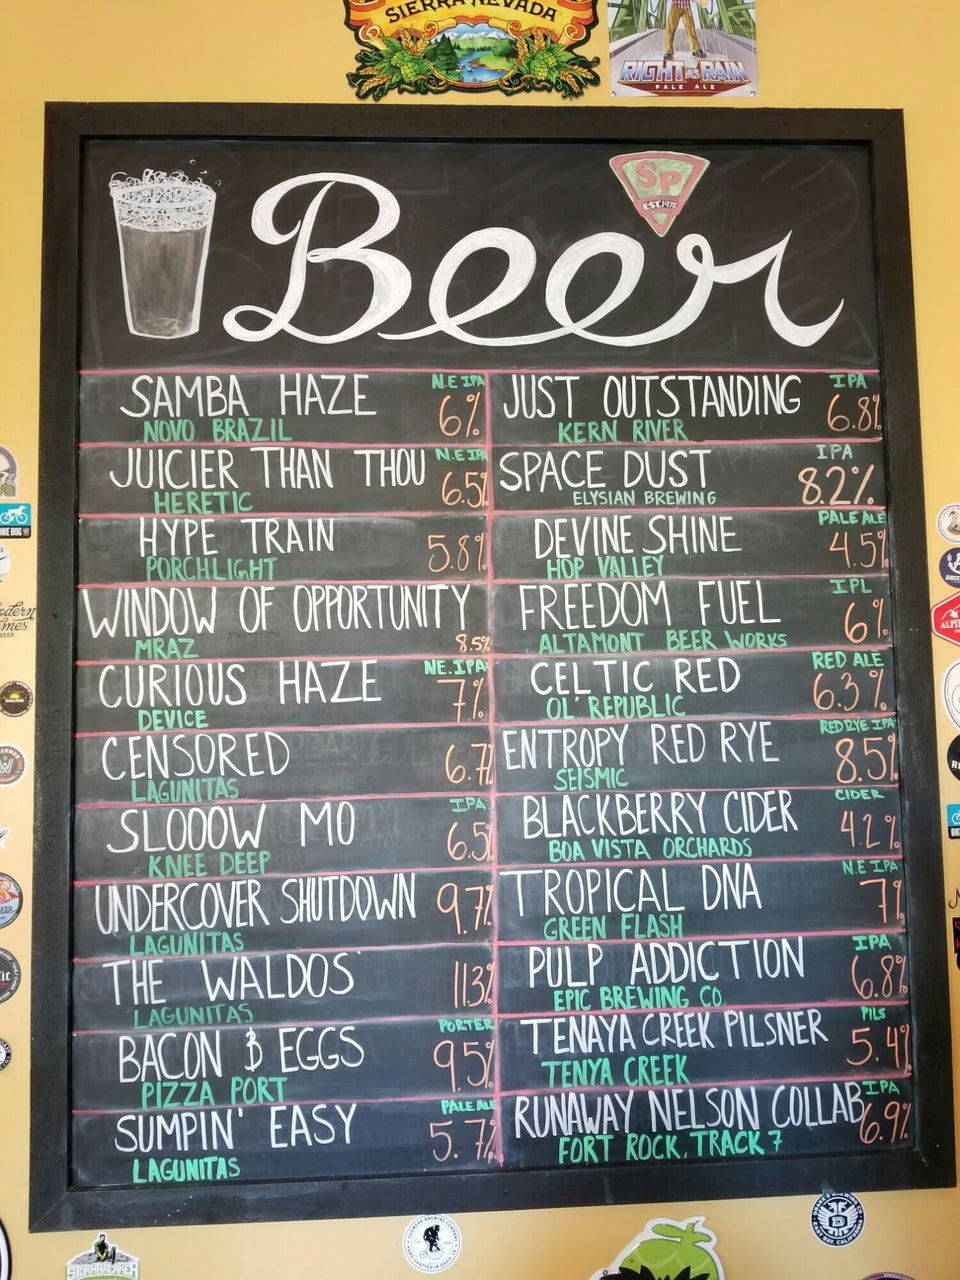 SIERRA NEVADA
RIGHT AS RAIN
PALE ALE
SP
EST. 1978
Beer
SAMBA HAZE N.E IPA 6%
NOVO BRAZIL
JUICIER THAN THOU N.E IPA 6.5%
HERETIC
HYPE TRAIN 5.8%
PORCHLIGHT
WINDOW OF OPPORTUNITY
MRAZ 8.5%
CURIOUS HAZE NE.IPA 7%
DEVICE
CENSORED 6.7%
LAGUNITAS
SLOOOW MO IPA 6.5%
KNEE DEEP
UNDERCOVER SHUTDOWN 9.7%
LAGUNITAS
THE WALDOS' 11.3%
LAGUNITAS
BACON & EGGS PORTER 9.5%
PIZZA PORT
SUMPIN' EASY PALE ALE 5.7%
LAGUNITAS
JUST OUTSTANDING IPA 6.8%
KERN RIVER
SPACE DUST IPA 8.2%
ELYSIAN BREWING
DEVINE SHINE PALE ALE 4.5%
HOP VALLEY
FREEDOM FUEL IPL 6%
ALTAMONT BEER WORKS
CELTIC RED RED ALE 6.3%
OL' REPUBLIC
ENTROPY RED RYE RED RYE IPA 8.5%
SEISMIC
BLACKBERRY CIDER CIDER 4.2%
BOA VISTA ORCHARDS
TROPICAL DNA N.E IPA 7%
GREEN FLASH
PULP ADDICTION IPA 6.8%
EPIC BREWING CO.
TENAYA CREEK PILSNER PILS 5.4%
TENYA CREEK
RUNAWAY NELSON COLLAB IPA 6.9%
FORT ROCK, TRACK 7
STORMBREAKER